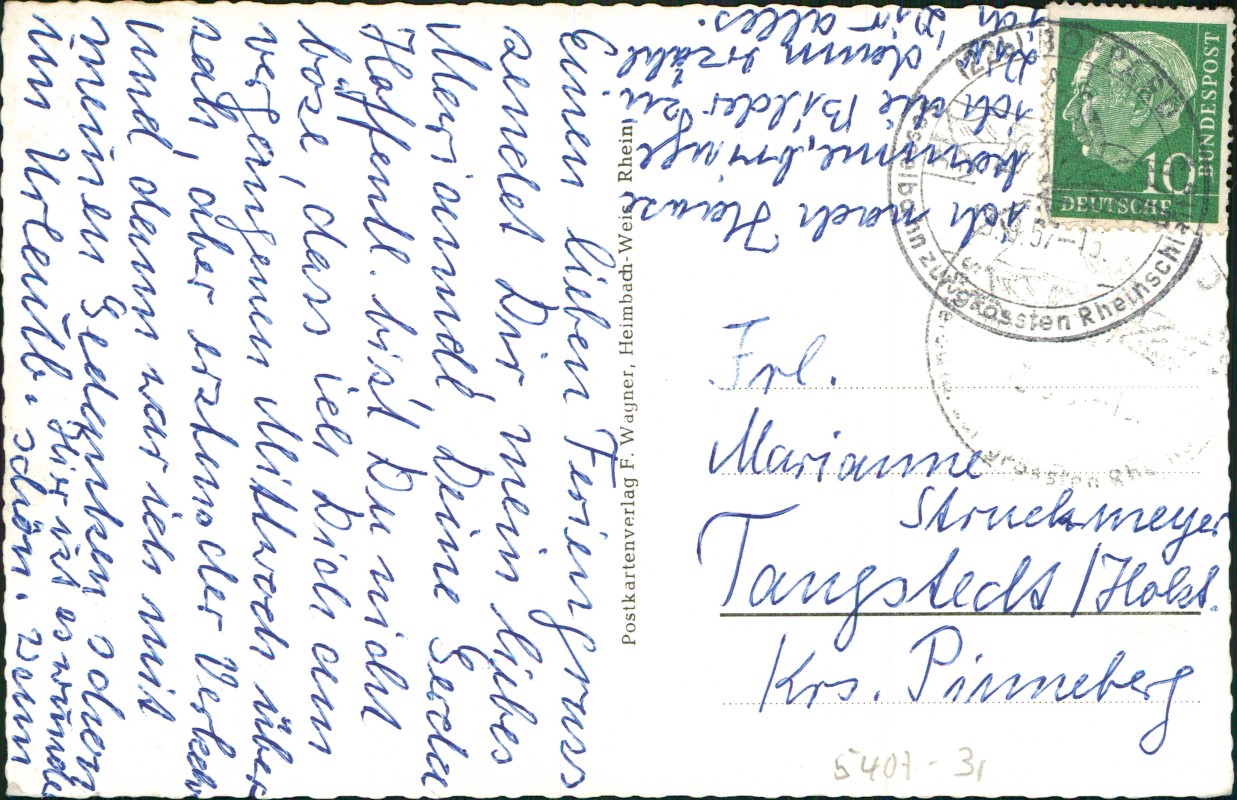 Einen lieben Feriengruss
sendet Dir mein liebes
Meriannd, Deine Gerda
Hoffentl. bist Du nicht
böse, dass ich Dich am
vergangenen Mittwoch über
sah, aber erstens der Verkehr
und, dann war ich mit
meinen Gedanken schon
im Urlaub. Hier ist es wunder
schön. Wenn
ich nach Hause
komme, bringe
ich die Bilder zu
Dir, dann erzähl
ich Dir alles.
Postkartenverlag F. Wagner, Heimbach-Weis, Rhein
BOPPARD
57-13
zur grössten Rheinschleife
grössten Rhe
DEUTSCHE
BUNDESPOST
10
Frl.
Marianne
Struckmeyer
Tangstedt/Holst.
Krs. Pinneberg
5407-31